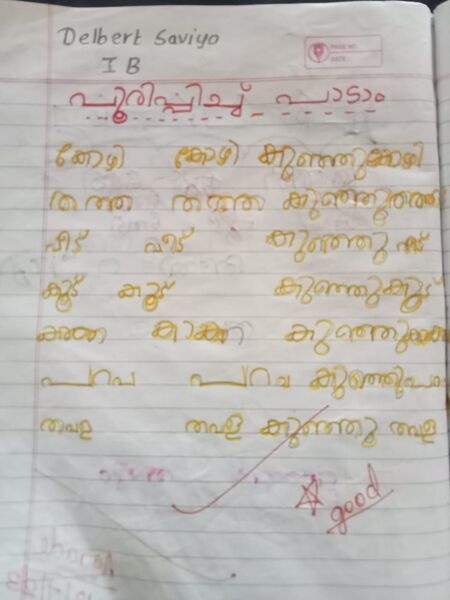 Delbert Saviyo
I B
PAGE NO.
DATE:
പൂരിപ്പിച്ച് - പാടാം
കോഴി കോഴി കുഞ്ഞുകോഴി
തത്ത തത്ത കുഞ്ഞുതത്ത
വീട് വീട് കുഞ്ഞു വീട്
കൂട് കൂട് കുഞ്ഞുകൂട്
കാക്ക കാക്ക കുഞ്ഞുകാക്ക
പറവ പറവ കുഞ്ഞുപറവ
തവള തവള കുഞ്ഞു തവള
good